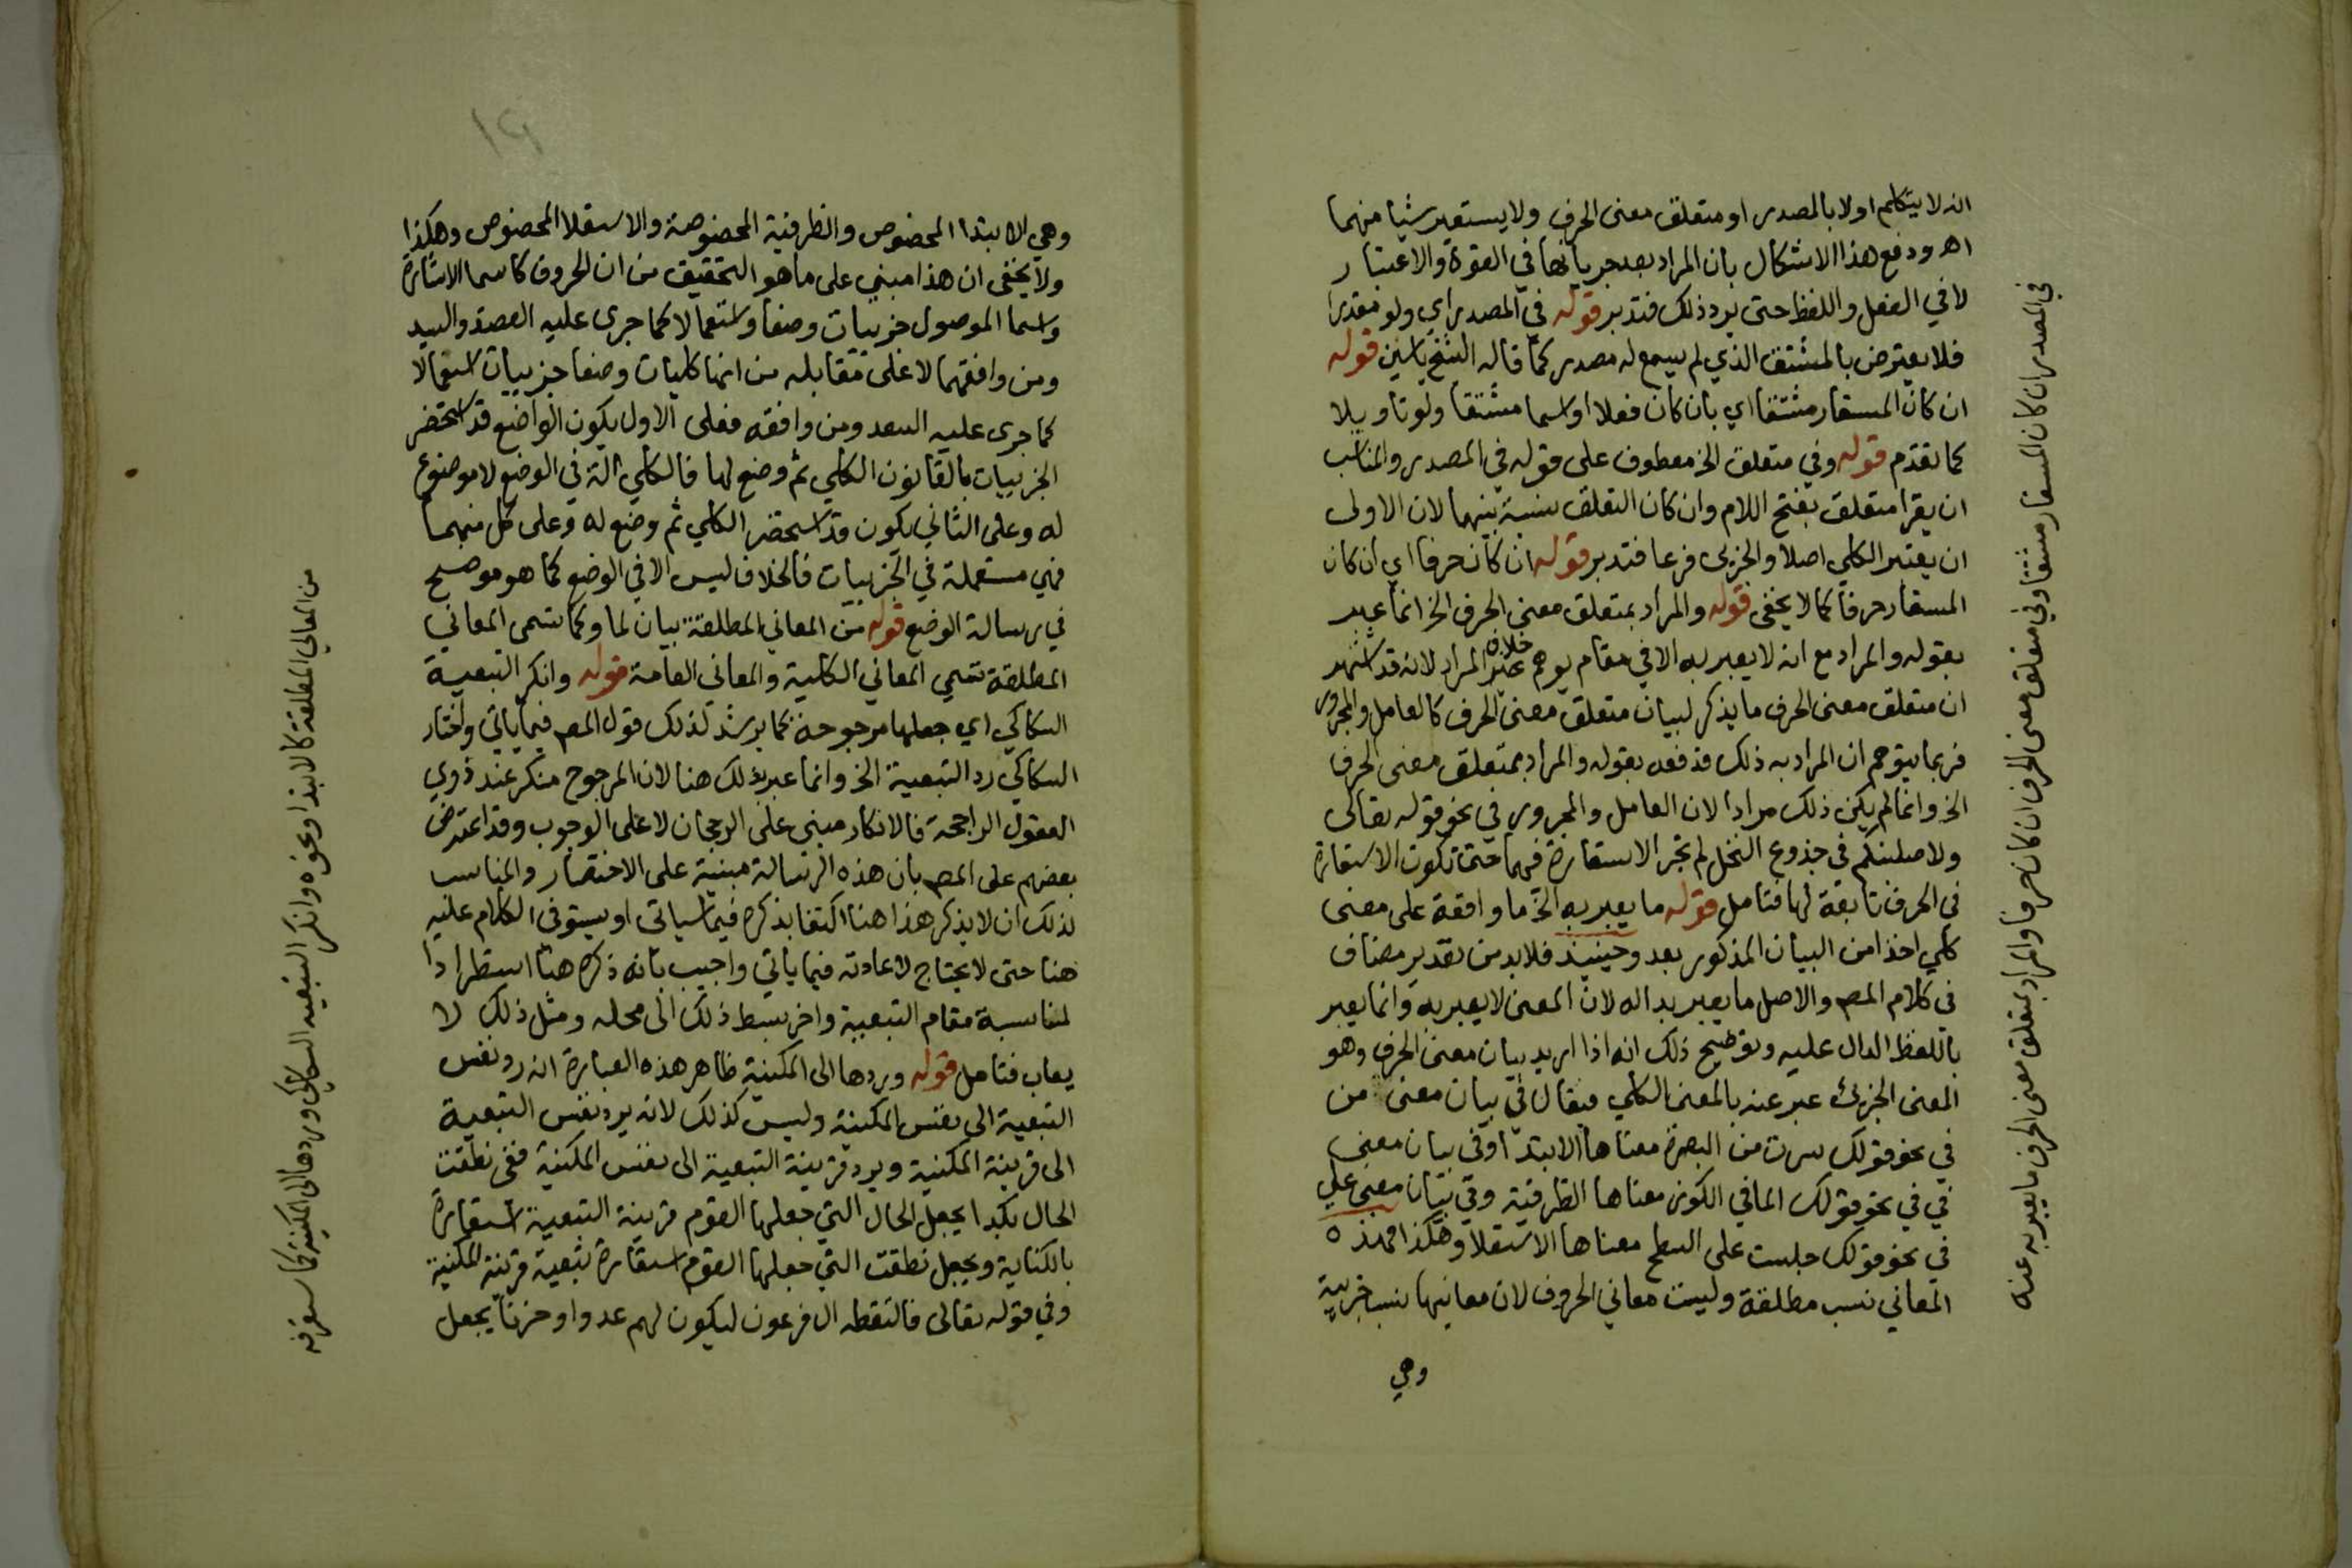 انه لا يتكلم اولا بالمصدر او متعلق معنى الحرف ولا يستعير شيا منهما
اهـ ودفع هذا الاشكال بان المراد بعد جريانها في القوة والاعتبار
لا في الفعل واللفظ حتى يرد ذلك فتدبر قوله في المصدر اي ولو مقدرا
فلا يعترض بالمشتق الذي لم يسمع له مصدر كما قاله الشيخ ياسين قوله
ان كان المستعار مشتقا اي بان كان فعلا او اسما مشتقا ولو تاويلا
كما تقدم قوله وفي متعلق الخ معطوف على قوله في المصدر والمناسب
ان يقرا متعلق بفتح اللام وان كان التعلق نسبة بينهما لان الاولى
ان يعتبر الكلي اصلا والجزيى فرعا فتدبر قوله ان كان حرفا اي ان كان
المستعار حرفا كما لا يخفى قوله والمراد بمتعلق معنى الحرف الخ انما عبر
بقوله والمراد مع انه لا يعبر به الا في مقام يوهم خلاف المراد لانه قد اشتهر
ان متعلق معنى الحرف ما يذكر لبيان متعلق معنى الحرف كالعامل والمجرور
فربما يتوهم ان المراد به ذلك فدفعه بقوله والمراد بمتعلق معنى الحرف
الخ وانما لم يكن ذلك مرادا لان العامل والمجرور في نحو قوله تعالى
ولاصلبنكم في جذوع النخل لم تجر الاستعارة فيهما حتى تكون الاستعارة
في الحرف تابعة لها فتامل قوله ما يعبر به الخ ما واقعة على معنى
كلي اخذا من البيان المذكور بعد وحينيذ فلا بد من تقدير مضاف
في كلام المصـ والاصل ما يعبر بداله لان المعنى لا يعبر به وانما يعبر
باللفظ الدال عليه وتوضيح ذلك انه اذا اريد بيان معنى الحرف وهو
المعنى الجزيئ عبر عنه بالمعنى الكلي فيقال في بيان معنى من
في نحو قولك سرت من البصرة معناها الابتدا وفي بيان معنى
في في نحو قولك الما في الكوز معناها الظرفية وفي بيان معنى على
في نحو قولك جلست على السطح معناها الاستعلا وهكذا فهذه
المعاني نسب مطلقة وليست معاني الحروف لان معانيها نسب جزيية
وهي
في المصدر ان كان المستعار مشتقا وفي متعلق معنى الحرف ان كان حرفا والمراد بمتعلق معنى الحرف ما يعبر به عنه
١٩
وهي الابتدا المخصوص والظرفية المخصوصة والاستعلا المخصوص وهكذا
ولا يخفى ان هذا مبني على ما هو التحقيق من ان الحروف كاسما الاشارة
واسما الموصول جزييات وضعا واستعمالا كما جرى عليه العضد والسيد
ومن وافقهما لا على مقابله من انها كليات وضعا جزييات استعمالا
كما جرى عليه السعد ومن وافقه فعلى الاول يكون الواضع قد استحضر
الجزييات بالقانون الكلي ثم وضع لها فالكلي الة في الوضع لا موضوع
له وعلى الثاني يكون قد استحضر الكلي ثم وضع له وعلى كل منهما
فهي مستعملة في الجزييات فالخلاف ليس الا في الوضع كما هو موضح
في رسالة الوضع قوله من المعاني المطلقة بيان لما وكما تسمى المعاني
المطلقة تسمي المعاني الكلية والمعاني العامة قوله وانكر التبعية
السكاكي اي جعلها مرجوحة كما يرشد لذلك قول المصـ فيما ياتي واختار
السكاكي رد التبعية الخ وانما عبر بذلك هنا لان المرجوح منكر عند ذوي
العقول الراجحة فالانكار مبني على الرجحان لا على الوجوب وقد اعترض
بعضهم على المصـ بان هذه الرسالة مبنية على الاختصار والمناسب
لذلك ان لا يذكر هذا هنا اكتفا بذكره فيما سياتي او يستوفى الكلام عليه
هنا حتى لا يحتاج لاعادته فيما ياتي واجيب بانه ذكره هنا استطرادا
لمناسبة مقام التبعية واخر بسط ذلك الى محله ومثل ذلك لا
يعاب فتامل قوله وردها الى المكنية ظاهر هذه العبارة انه رد نفس
التبعية الى نفس المكنية وليس كذلك لانه يرد نفس التبعية
الى قرينة المكنية ويرد قرينة التبعية الى نفس المكنية ففي نطقت
الحال بكذا يجعل الحال التي جعلها القوم قرينة التبعية استعارة
بالكناية ويجعل نطقت التي جعلها القوم استعارة تبعية قرينة المكنية
وفي قوله تعالى فالتقطه ال فرعون ليكون لهم عدوا وحزنا يجعل
من المعاني المطلقة كالابتدا ونحوه وانكر التبعية السكاكي وردها الى المكنية كما ستعرفه